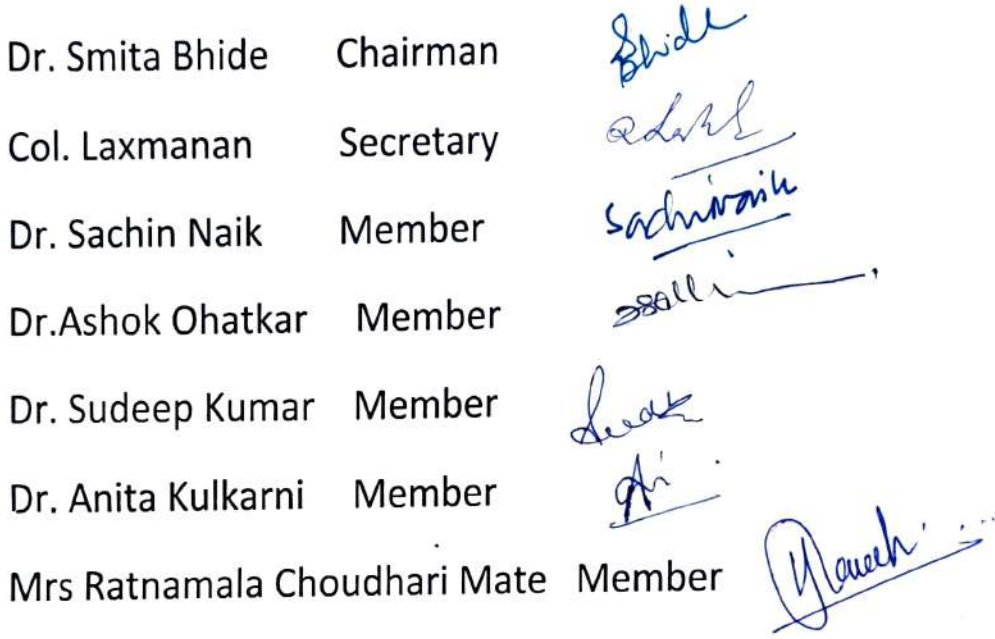 Dr. Smita Bhide Chairman Bhide
Col. Laxmanan Secretary
Dr. Sachin Naik Member Sachinnaik
Dr.Ashok Ohatkar Member
Dr. Sudeep Kumar Member
Dr. Anita Kulkarni Member
Mrs Ratnamala Choudhari Mate Member